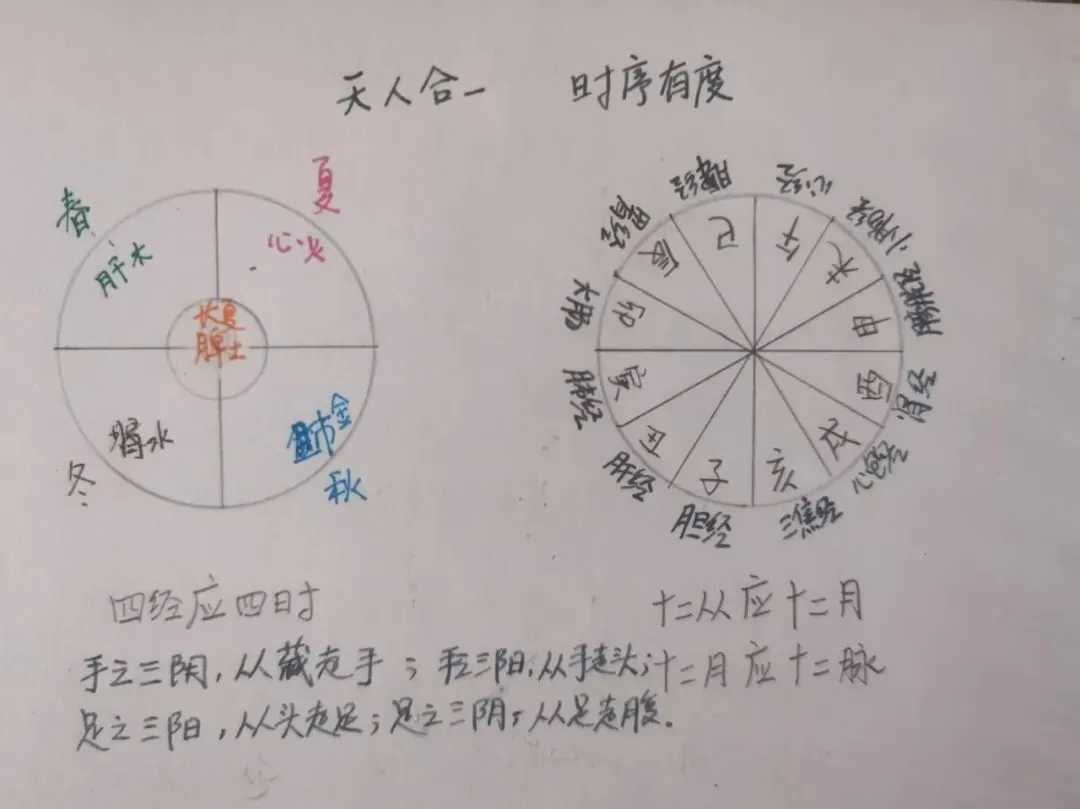 天人合一 时序有度
春
夏
肝木
心火
长夏
脾土
肾水
肺金
冬
秋
脾经
心经
胃经
小肠经
大肠
膀胱经
肺经
肾经
肝经
心包经
胆经
三焦经
巳
午
辰
未
卯
申
寅
酉
丑
戌
子
亥
四经应四时
十二从应十二月
手之三阴，从藏走手；手之三阳，从手走头；十二月应十二脉
足之三阳，从头走足；足之三阴，从足走腹。